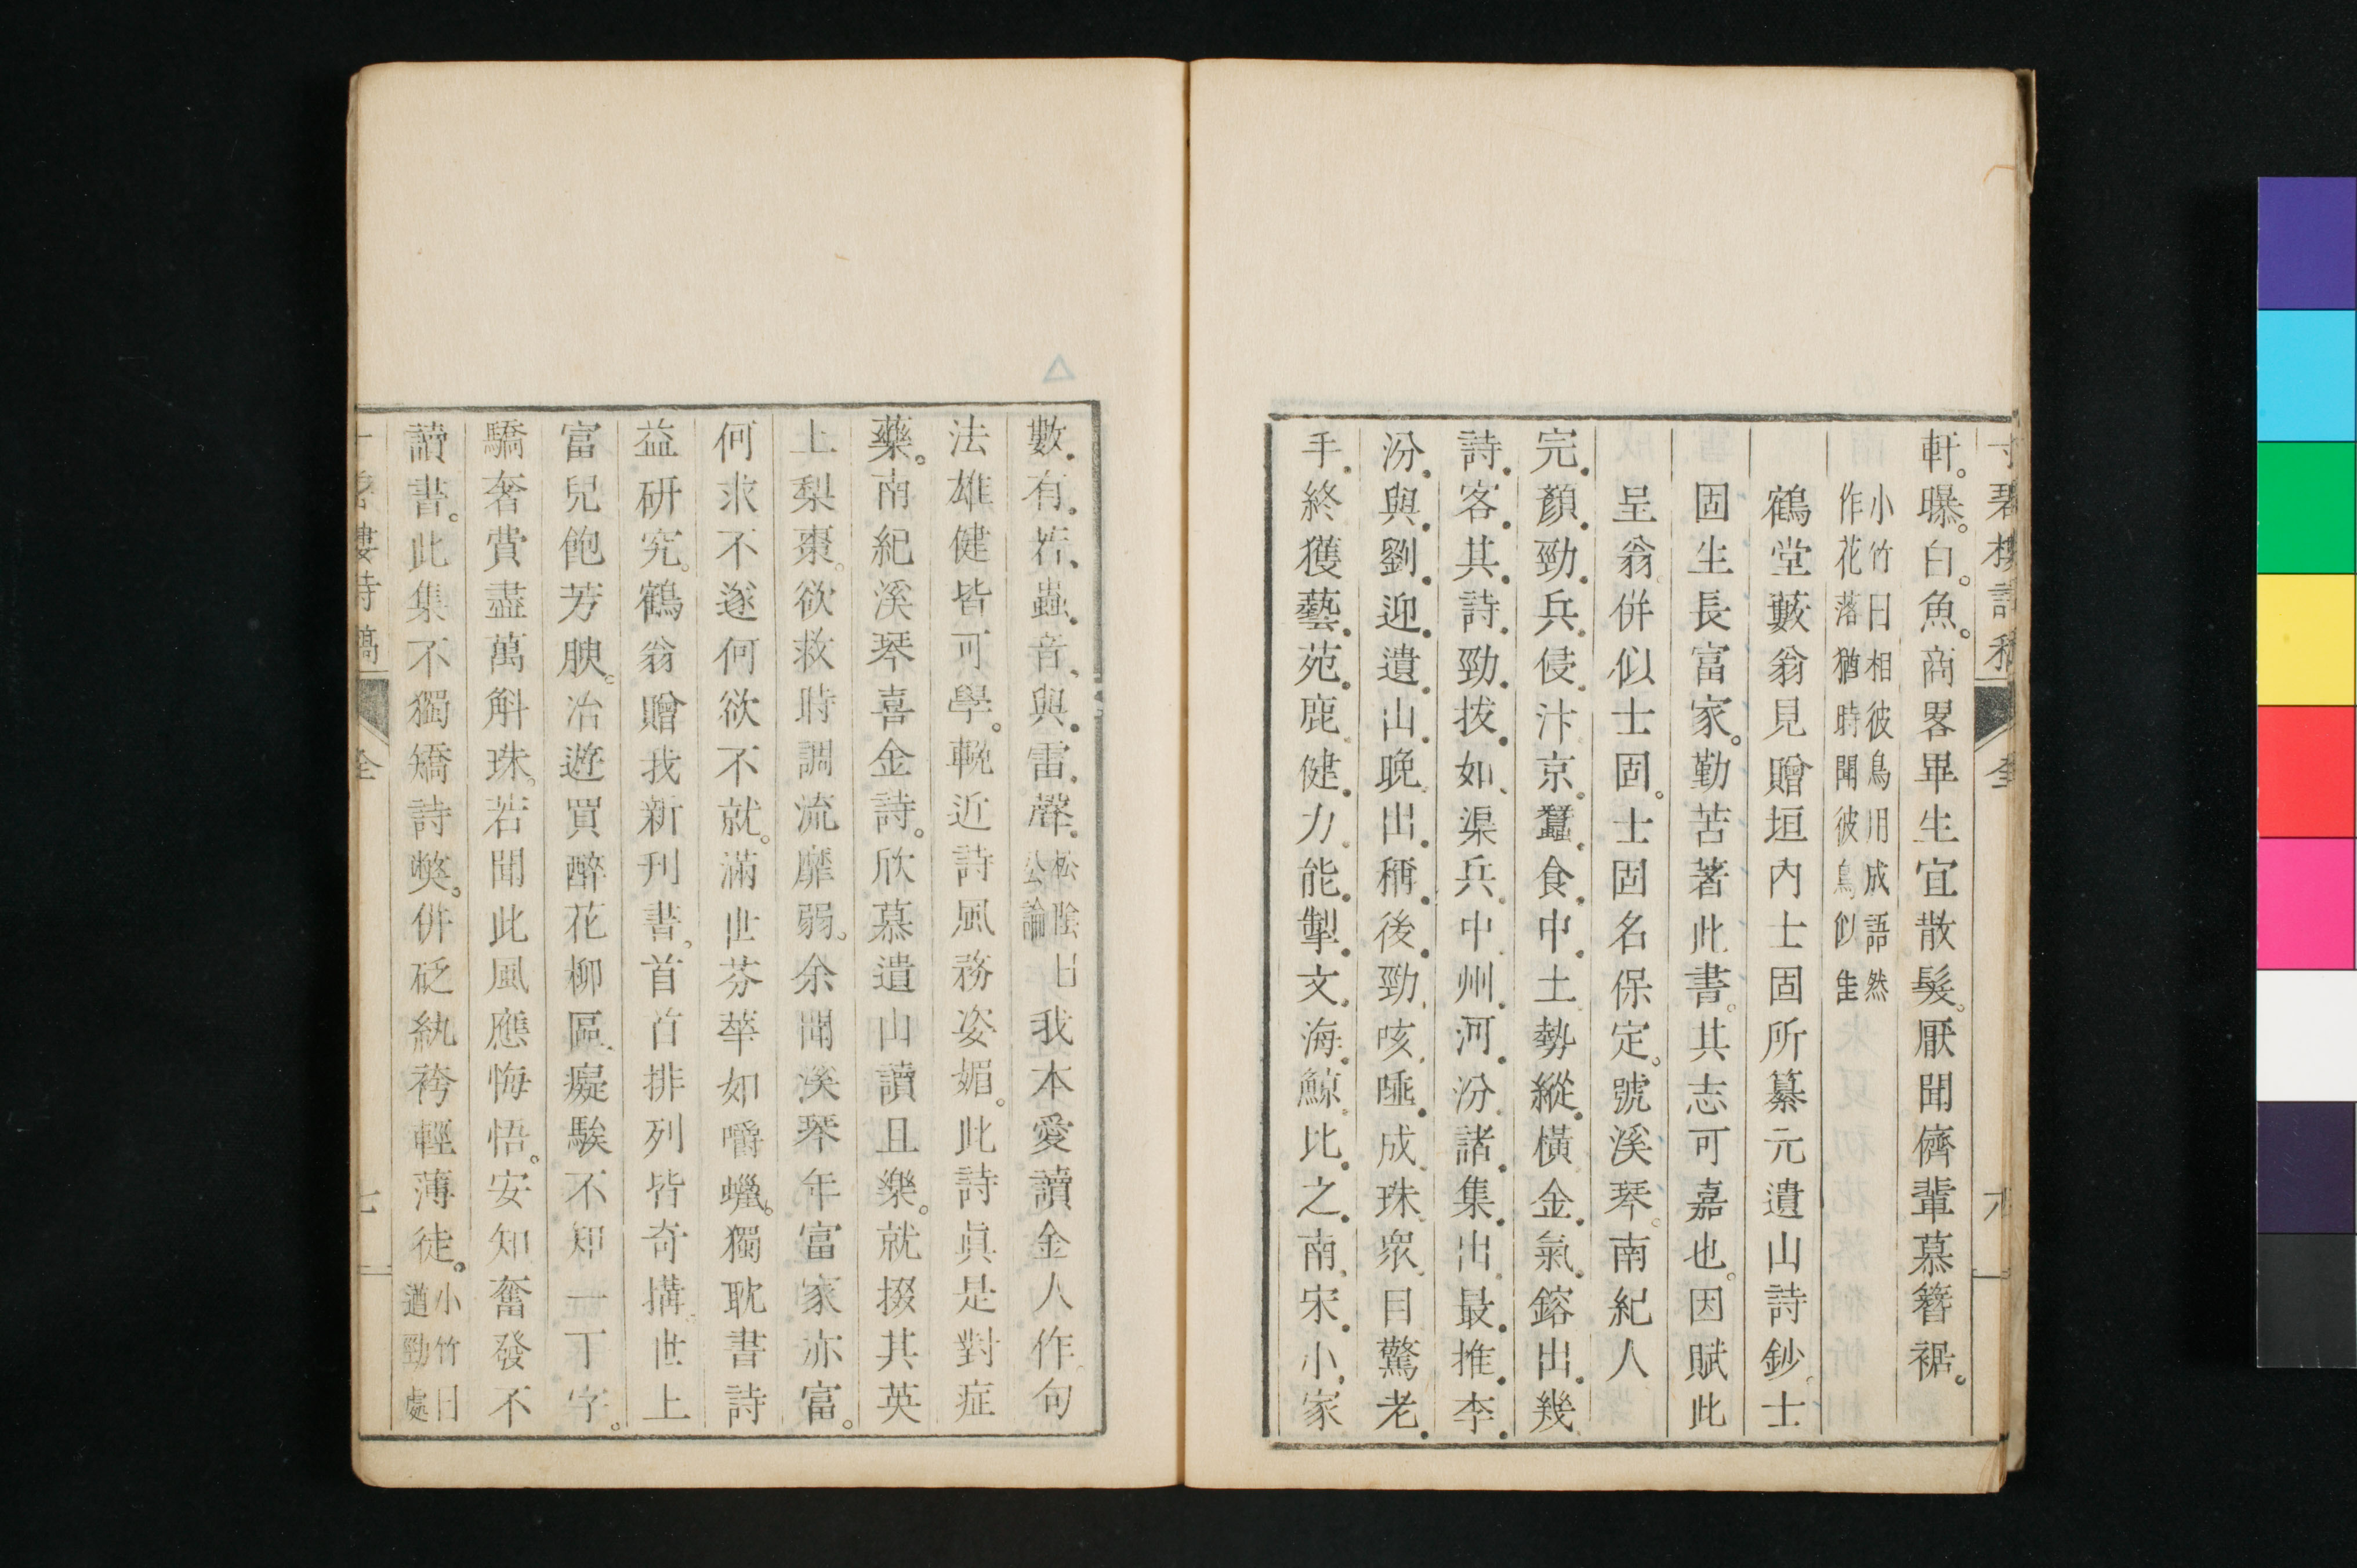 軒。曝。白。魚。商畧畢生宜散髮。厭聞儕輩慕簪裾。
小竹曰相彼鳥用成語然
作花落猶時聞彼鳥似隹
鶴堂藪翁見贈垣內士固所纂元遺山詩鈔。士
固生長富家。勤苦著此書。其志可嘉也。因賦此
呈翁。併似士固。士固名保定。號溪琴。南紀人
完顏勁兵侵汴京。蠶食中土勢縱橫。金氣鎔出幾
詩客。其詩勁拔如渠兵。中州河汾諸集出。最推李
汾與劉迎。遺山晚出稱後勁。咳唾成珠衆目驚。老
手終獲藝苑鹿。健力能掣文海鯨。比之南宋小家
數。有若蟲音與雷聲。
松陰曰
公論
我本愛讀金人作。句
法雄健皆可學。輓近詩風務姿媚。此詩眞是對症
藥。南紀溪琴喜金詩。欣慕遺山讀且樂。就掇其英
上梨棗。欲救時調流靡弱。余聞溪琴年富家亦富。
何求不遂何欲不就。滿世芬華如嚼蠟。獨耽書詩
益研究。鶴翁贈我新刊書。首首排列皆奇搆。世上
富兒飽芳腴。冶遊買醉花柳區。癡騃不知一丁字。
驕奢費盡萬斛珠。若聞此風應悔悟。安知奮發不
讀書。此集不獨矯詩獘。併砭紈袴輕薄徒。
小竹曰
遒勁處
樓詩稿
全
七